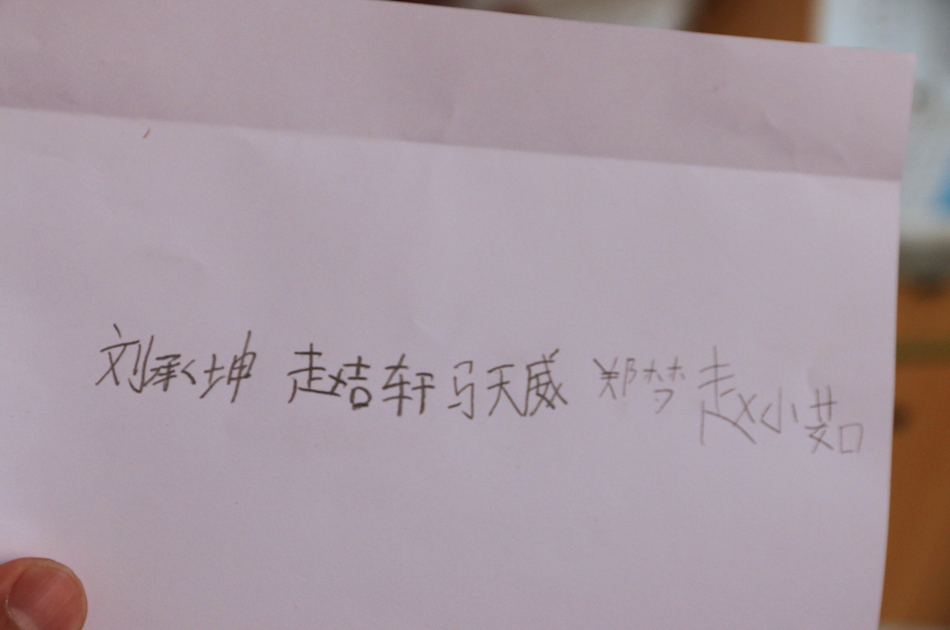 刘承坤 赵吉轩 马天威 郑梦 赵小茹